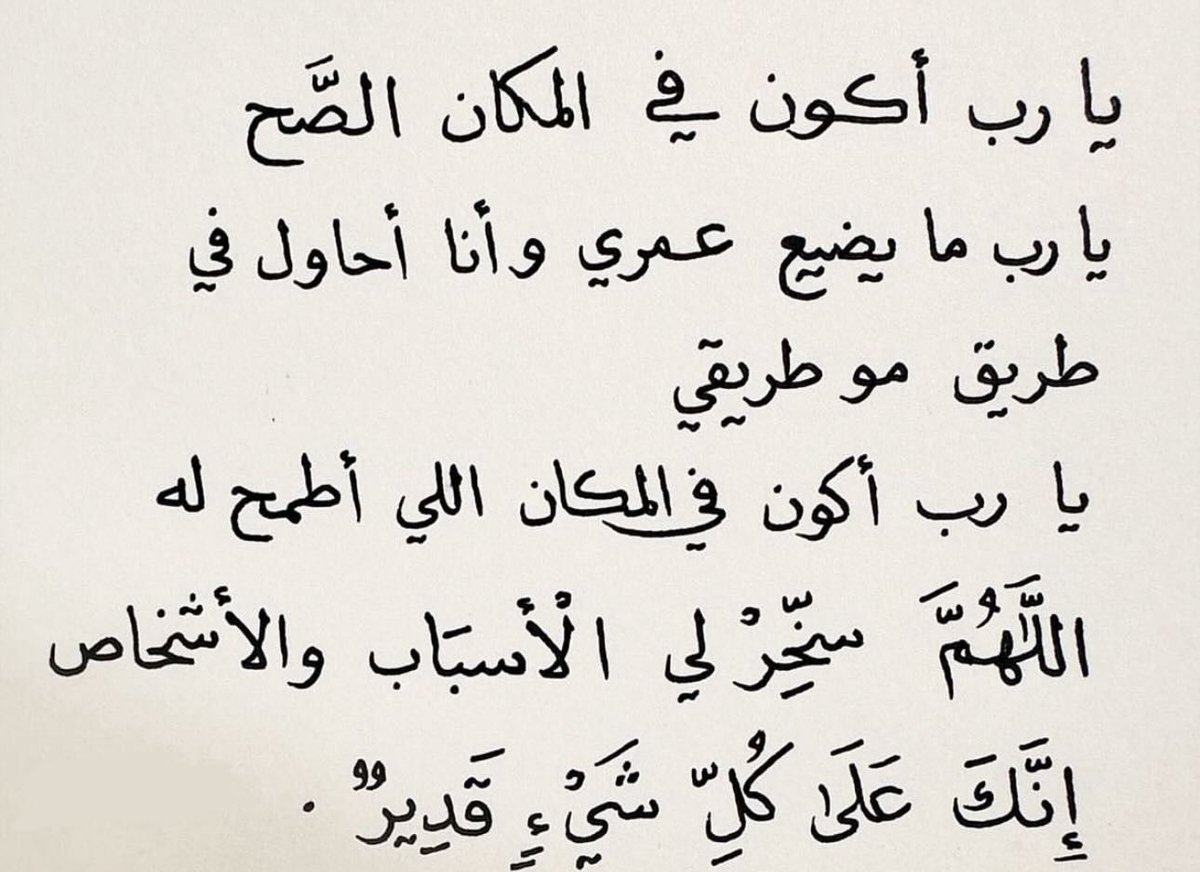 يا رب أكون في المكان الصَّح
يا رب ما يضيع عمري وأنا أحاول في
طريق مو طريقي
يا رب أكون في المكان اللي أطمح له
اللَّهُمَّ سخِّرْ لي الْأسبَاب والأشخاص
إِنَّكَ عَلَىٰ كُلِّ شَيْءٍ قَدِيرٌ .